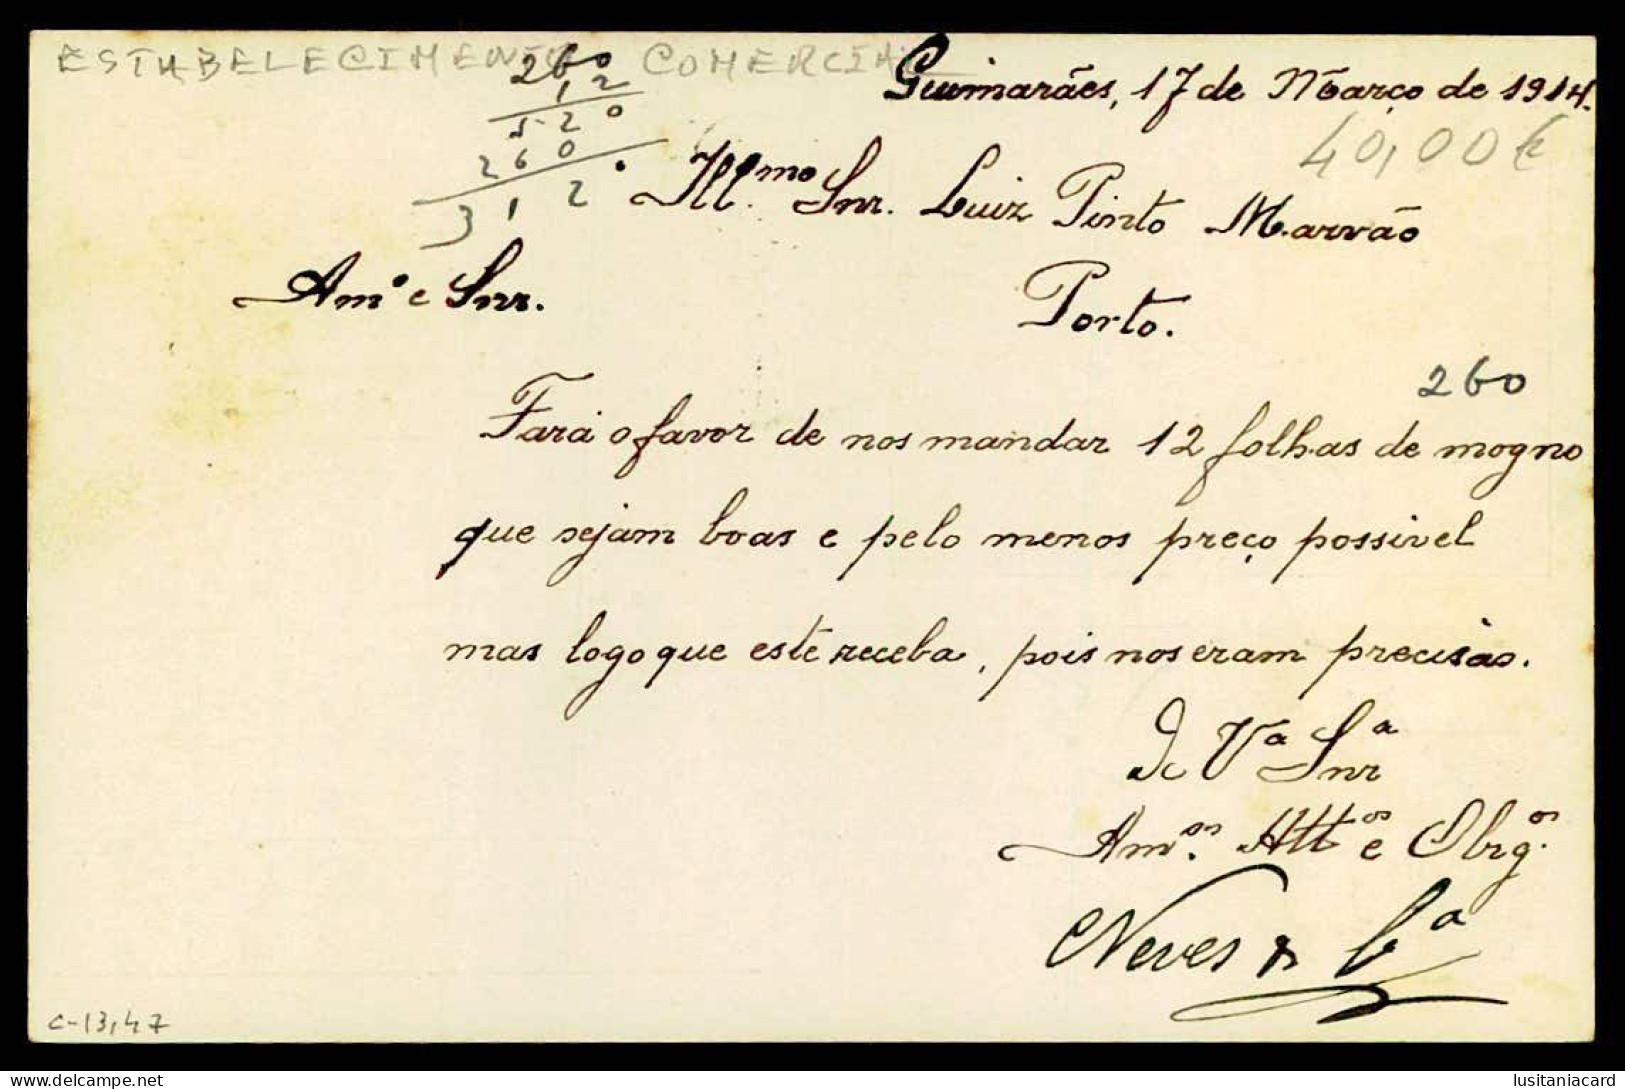 ESTABELECIMENTO COMERCIAL
260
12
520
260
312
Guimarães, 17 de Março de 1914.
40,00€
Ill.mo Snr. Luiz Pinto Marvão
Amº e Snr.
Porto.
260
Fará o favor de nos mandar 12 folhas de mogno
que sejam boas e pelo menos preço possivel
mas logo que este receba, pois nos eram precisas.
De Vª Snrª
Am.os Attos e Obrg.os
Neves & Cª
C-13,47
lusitaniacard